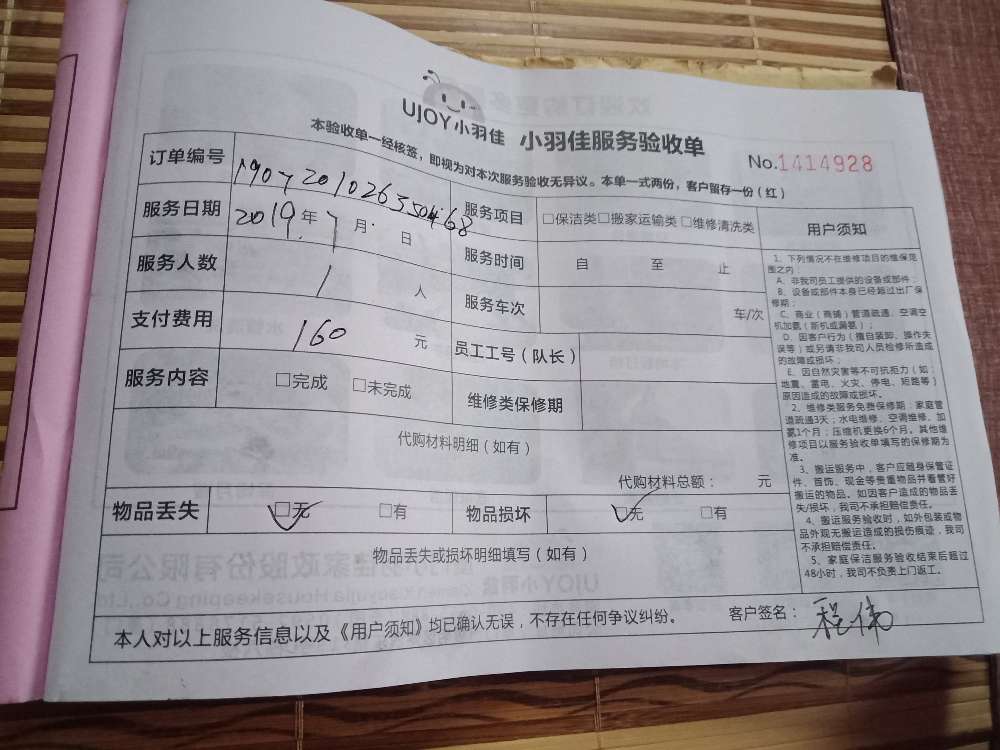 UJOY小羽佳 小羽佳服务验收单
No.1414928
本验收单一经核签，即视为对本次服务验收无异议。本单一式两份，客户留存一份（红）
订单编号 服务项目 □保洁类□搬家运输类 □维修清洗类
服务日期 2019.年 7 月 日 服务时间 自 至 止
服务人数 1 人 服务车次 车/次
支付费用 160 元 员工工号（队长）
服务内容 □完成 □未完成 维修类保修期
代购材料明细（如有）
代购材料总额： 元
物品丢失 □无 □有 物品损坏 □无 □有
物品丢失或损坏明细填写（如有）
本人对以上服务信息以及《用户须知》均已确认无误，不存在任何争议纠纷。 客户签名：程伟
用户须知
1、下列情况不在维修项目的维保范
围之内
A、非我司员工提供的设备或部件；
B、设备或部件本身已经超过出厂保
修期；
C、商业（商铺）管道疏通、空调空
机加氨（新机或漏氨）；
D、因客户行为（擅自装卸、操作失
误等）或另请非我司人员检修所造成
的故障或损坏；
E、因自然灾害等不可抗拒力（如：
地震、雷电、火灾、停电、短路等）
原因造成的故障或损坏。
2、维修类服务免费保修期：家庭管
道疏通3天；水电维修、空调维修、加
氨1个月；压缩机更换6个月。其他维
修项目以服务验收单填写的保修期为
准。
3、搬运服务中，客户应随身保管证
件、首饰、现金等贵重物品并看管好
搬运的物品。如因客户造成的物品丢
失/损坏，我司不承担赔偿责任。
4、搬运服务验收时，如外包装或物
品外观无搬运造成的损伤痕迹，我司
不承担赔偿责任。
5、家庭保洁服务验收结束后超过
48小时，我司不负责上门返工。